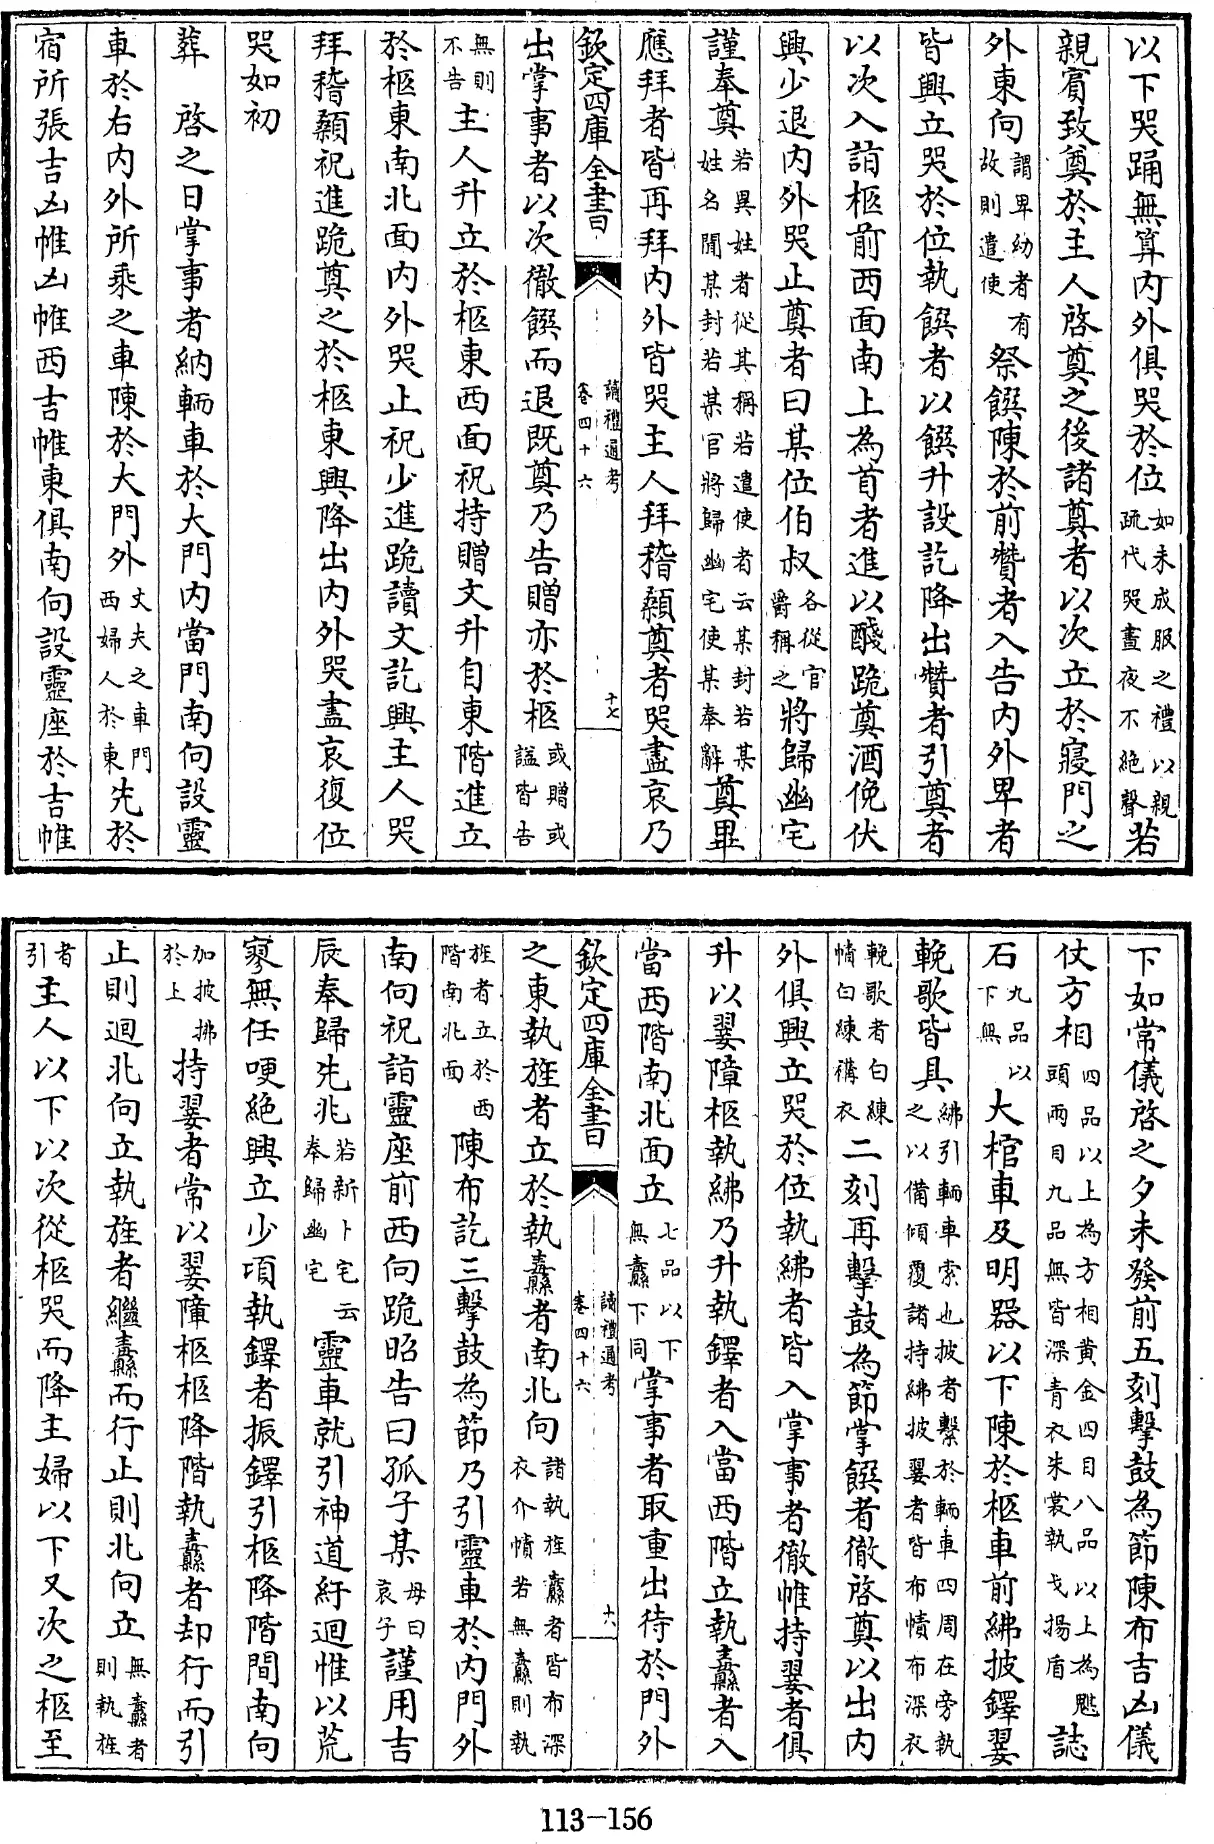 以下哭踊無算内外俱哭於位如未成服之禮以親疏代哭晝夜不絶聲若
親賓致奠於主人啓奠之後諸奠者以次立於寢門之
外東向謂卑幼者有故則遣使祭饌陳於前贊者入告内外卑者
皆興立哭於位執饌者以饌升設訖降出贊者引奠者
以次入詣柩前西面南上為首者進以醆跪奠酒俛伏
興少退内外哭止奠者曰某位伯叔各從官爵稱之將歸幽宅
謹奉奠若異姓者從其稱若遣使者云某封若某姓名聞某封若某官將歸幽宅使某奉辭奠畢
應拜者皆再拜内外皆哭主人拜稽顙奠者哭盡哀乃
欽定四庫全書 讀禮通考卷四十六 十七
出掌事者以次徹饌而退既奠乃告贈亦於柩或贈或諡皆告
無則不告主人升立於柩東西面祝持贈文升自東階進立
於柩東南北面内外哭止祝少進跪讀文訖興主人哭
拜稽顙祝進跪奠之於柩東興降出内外哭盡哀復位
哭如初
葬 啓之日掌事者納輀車於大門内當門南向設靈
車於右内外所乘之車陳於大門外丈夫之車門西婦人於東先於
宿所張吉凶帷凶帷西吉帷東俱南向設靈座於吉帷
下如常儀啓之夕未發前五刻擊鼓為節陳布吉凶儀
仗方相四品以上為方相黄金四目八品以上為魌頭兩目九品無皆深青衣朱裳執戈揚盾誌
石九品以下無大棺車及明器以下陳於柩車前紼披鐸翣
輓歌皆具紼引輀車索也披者繫於輀車四周在旁執之以備傾覆諸持紼披翣者皆布幘布深衣
輓歌者白練幘白練褠衣二刻再擊鼓為節掌饌者徹啓奠以出内
外俱興立哭於位執紼者皆入掌事者徹帷持翣者俱
升以翣障柩執紼乃升執鐸者入當西階立執纛者入
當西階南北面立七品以下無纛下同掌事者取重出待於門外
欽定四庫全書 讀禮通考卷四十六 十八
之東執旌者立於執纛者南北向諸執旌纛者皆布深衣介幘若無纛則執
旌者立於西階南北面陳布訖三擊鼓為節乃引靈車於内門外
南向祝詣靈座前西向跪昭告曰孤子某母曰哀子謹用吉
辰奉歸先兆若新卜宅云奉歸幽宅靈車就引神道紆迴惟以荒
寥無任哽絶興立少頃執鐸者振鐸引柩降階間南向
加披拂於上持翣者常以翣障柩柩降階執纛者却行而引
止則迴北向立執旌者繼纛而行止則北向立無纛者則執旌
者引主人以下以次從柩哭而降主婦以下又次之柩至
113-156